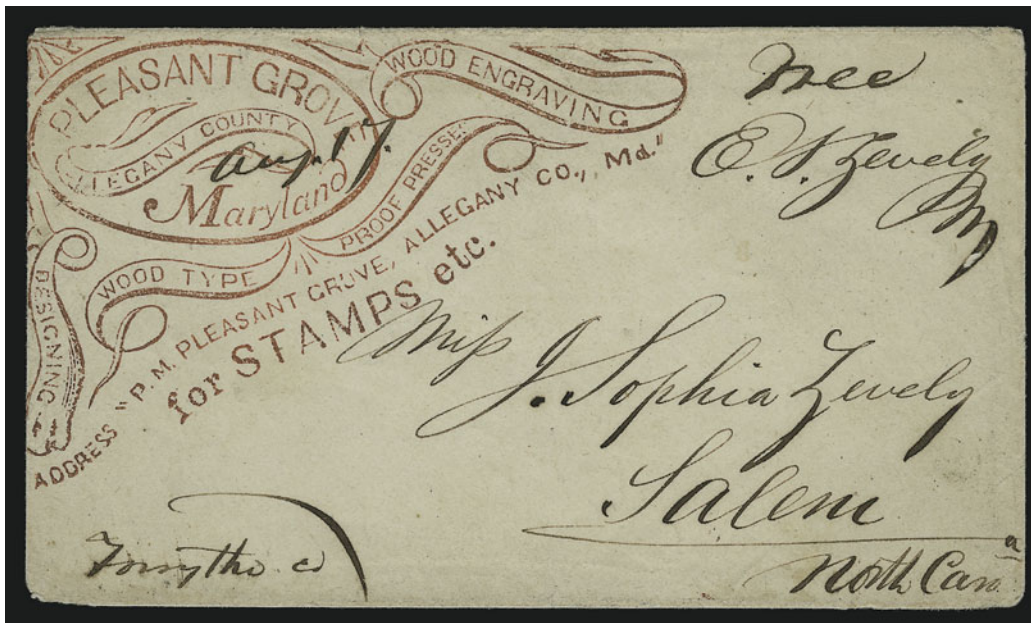 PLEASANT GROVE
ALLEGANY COUNTY
Maryland
Aug. 17.
WOOD ENGRAVING
PROOF PRESSES
WOOD TYPE
DESIGNING
ADDRESS "P.M. PLEASANT GROVE, ALLEGANY CO., Md."
for STAMPS etc.
Free
E. S. Zevely
PM
Miss J. Sophia Zevely
Salem
North Car a
Forsythe co